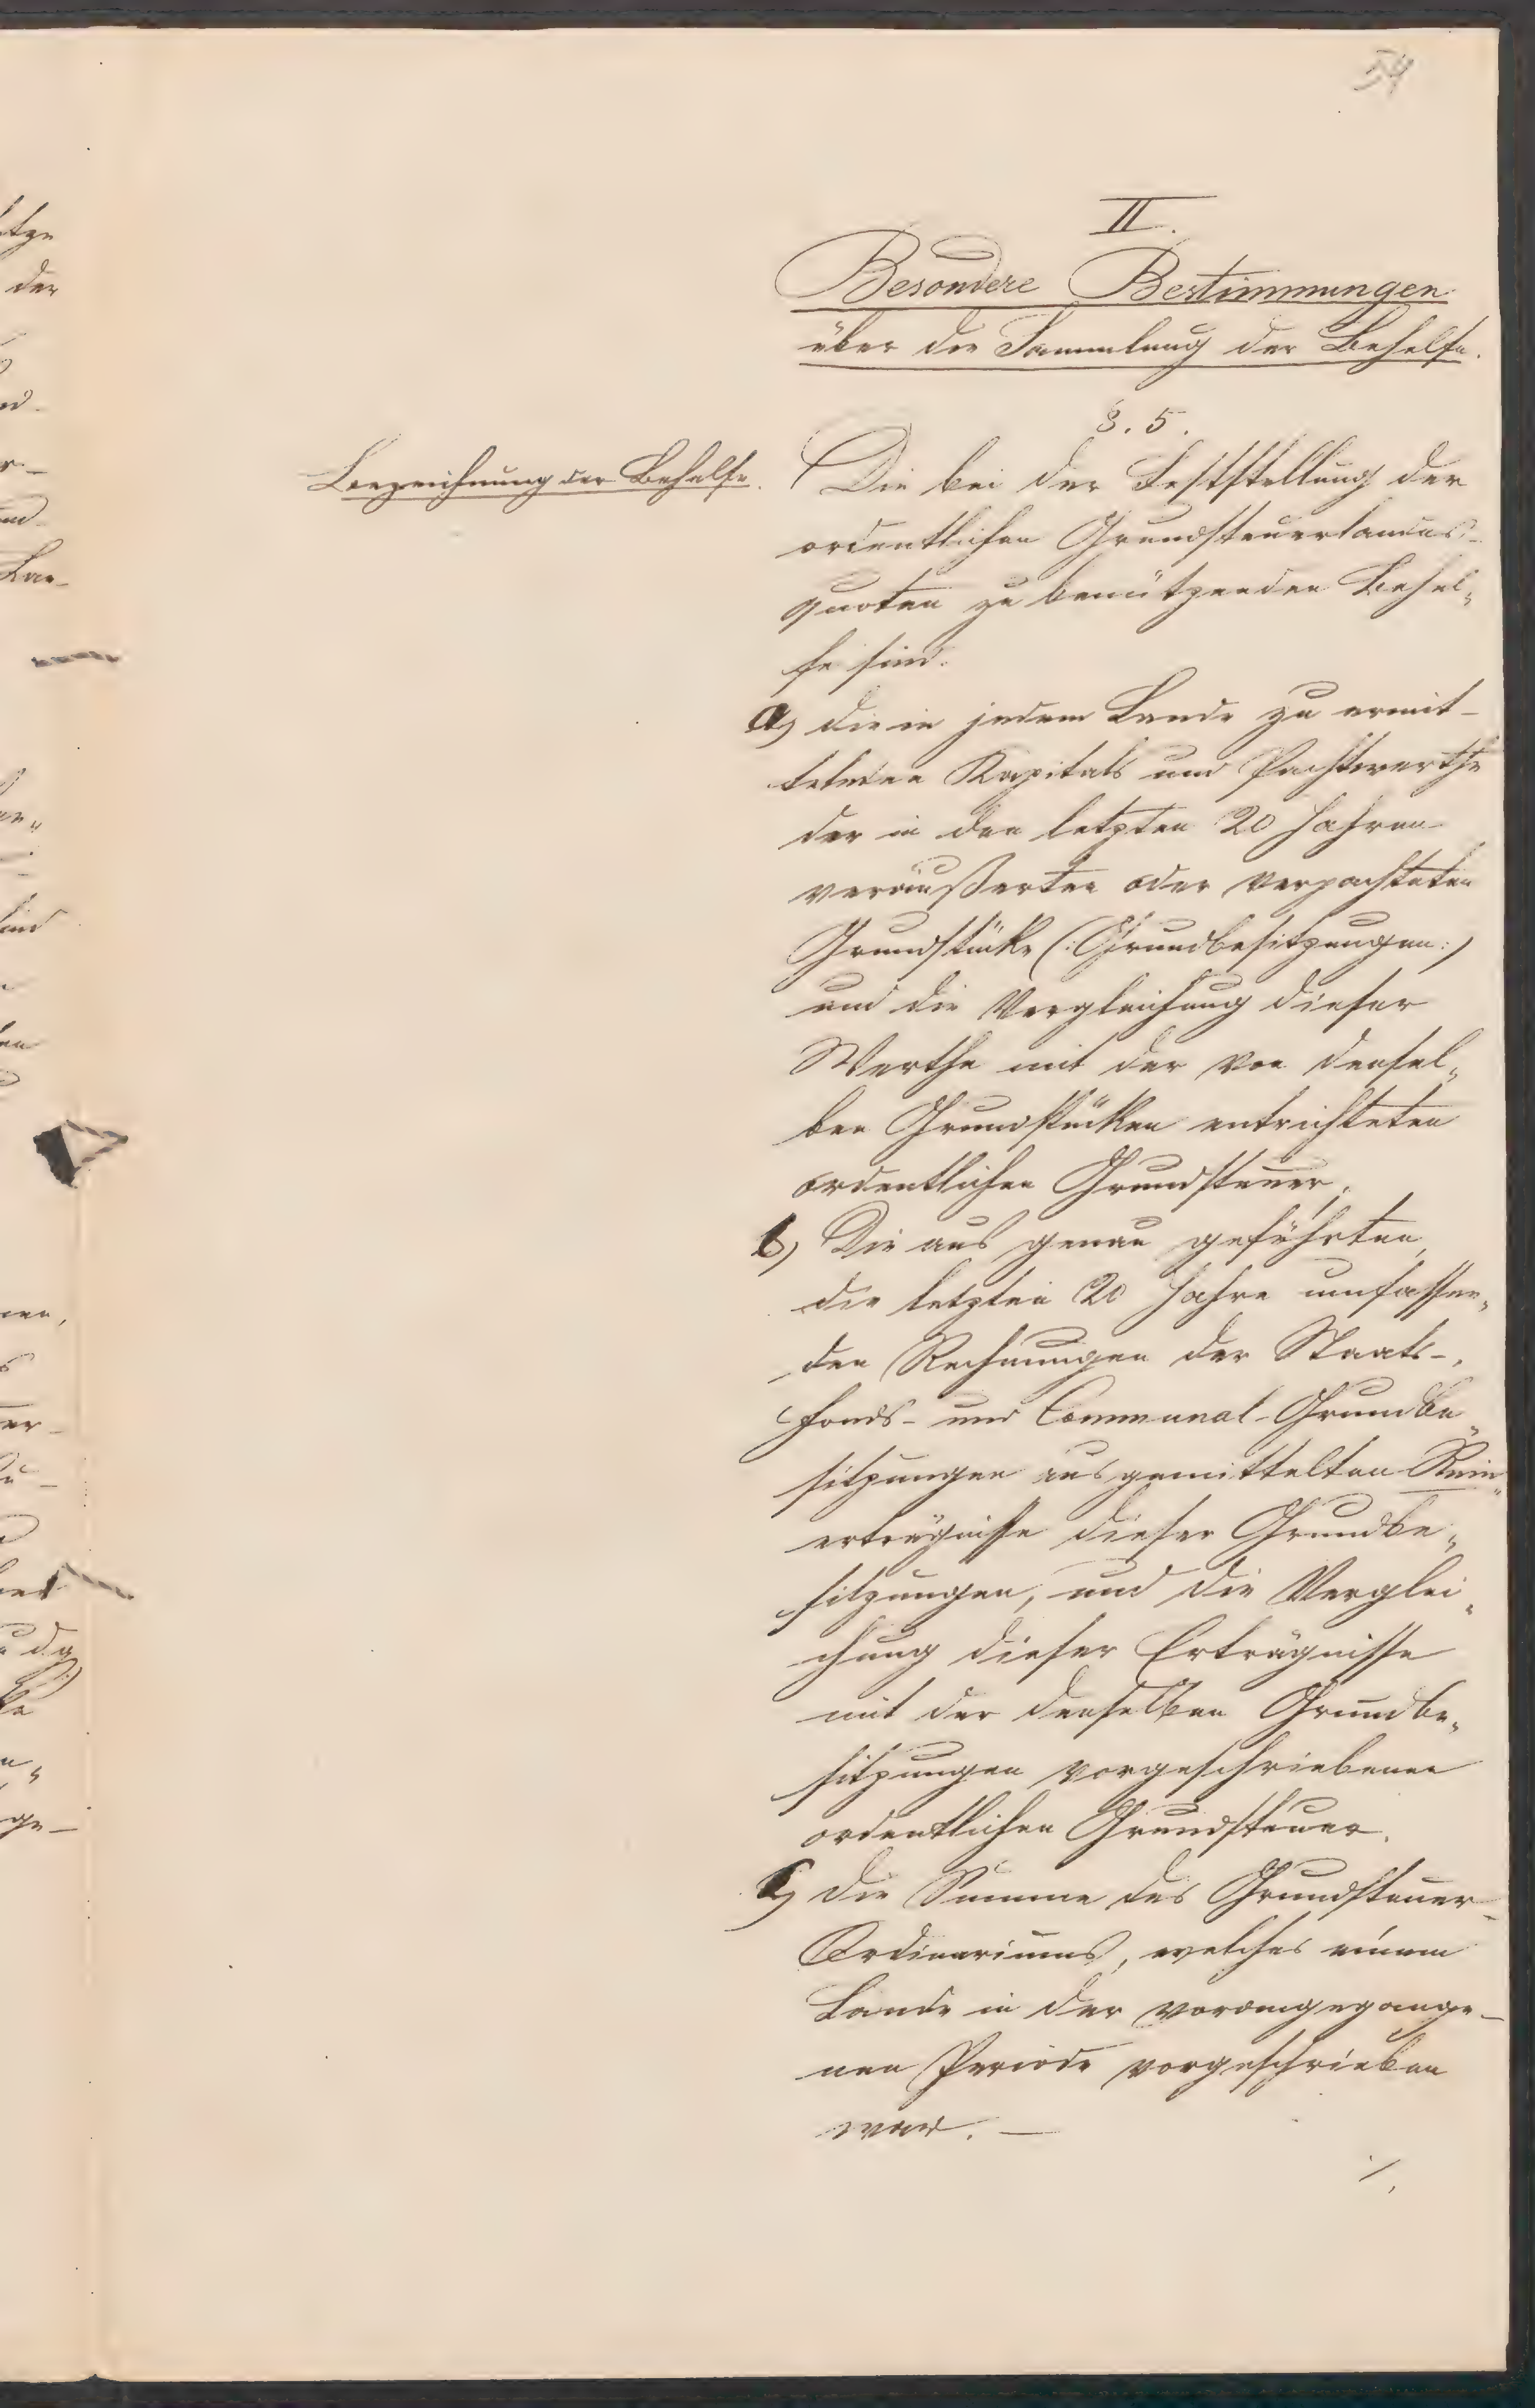 54
II.
Besondere Bestimmungen
über die Sammlung der Behelfe.
§. 5.
Bezeichnung der Behelfe.
Die bei der Feststellung der
ordentlichen Grundsteuerlandes-
quoten zu benützenden Behel„
fe sind:
a) die in jedem Lande zu ermit-
telnden Kapitals und Pachtwerthe
der in den letzten 20 Jahren
veräußerten oder verpachteten
Grundstücke (:Grundbesitzungen:)
und die Vergleichung dieser
Werthe mit der von densel„
ben Grundstücken entrichteten
ordentlichen Grundsteuer,
b) Die aus genau geführten,
die letzten 20 Jahre umfassen„
den Rechnungen der Staats-,
Fonds- und Communal-Grundbe„
sitzungen ausgemittelten Rein„
erträgnisse dieser Grundbe„
sitzungen, und die Verglei„
chung dieser Erträgnisse
mit der denselben Grundbe„
sitzungen vorgeschriebenen
ordentlichen Grundsteuer.
c) die Summe des Grundsteuer-
Ordinariums, welches einem
Lande in der vorangegange-
nen Periode vorgeschrieben
war. —
./.